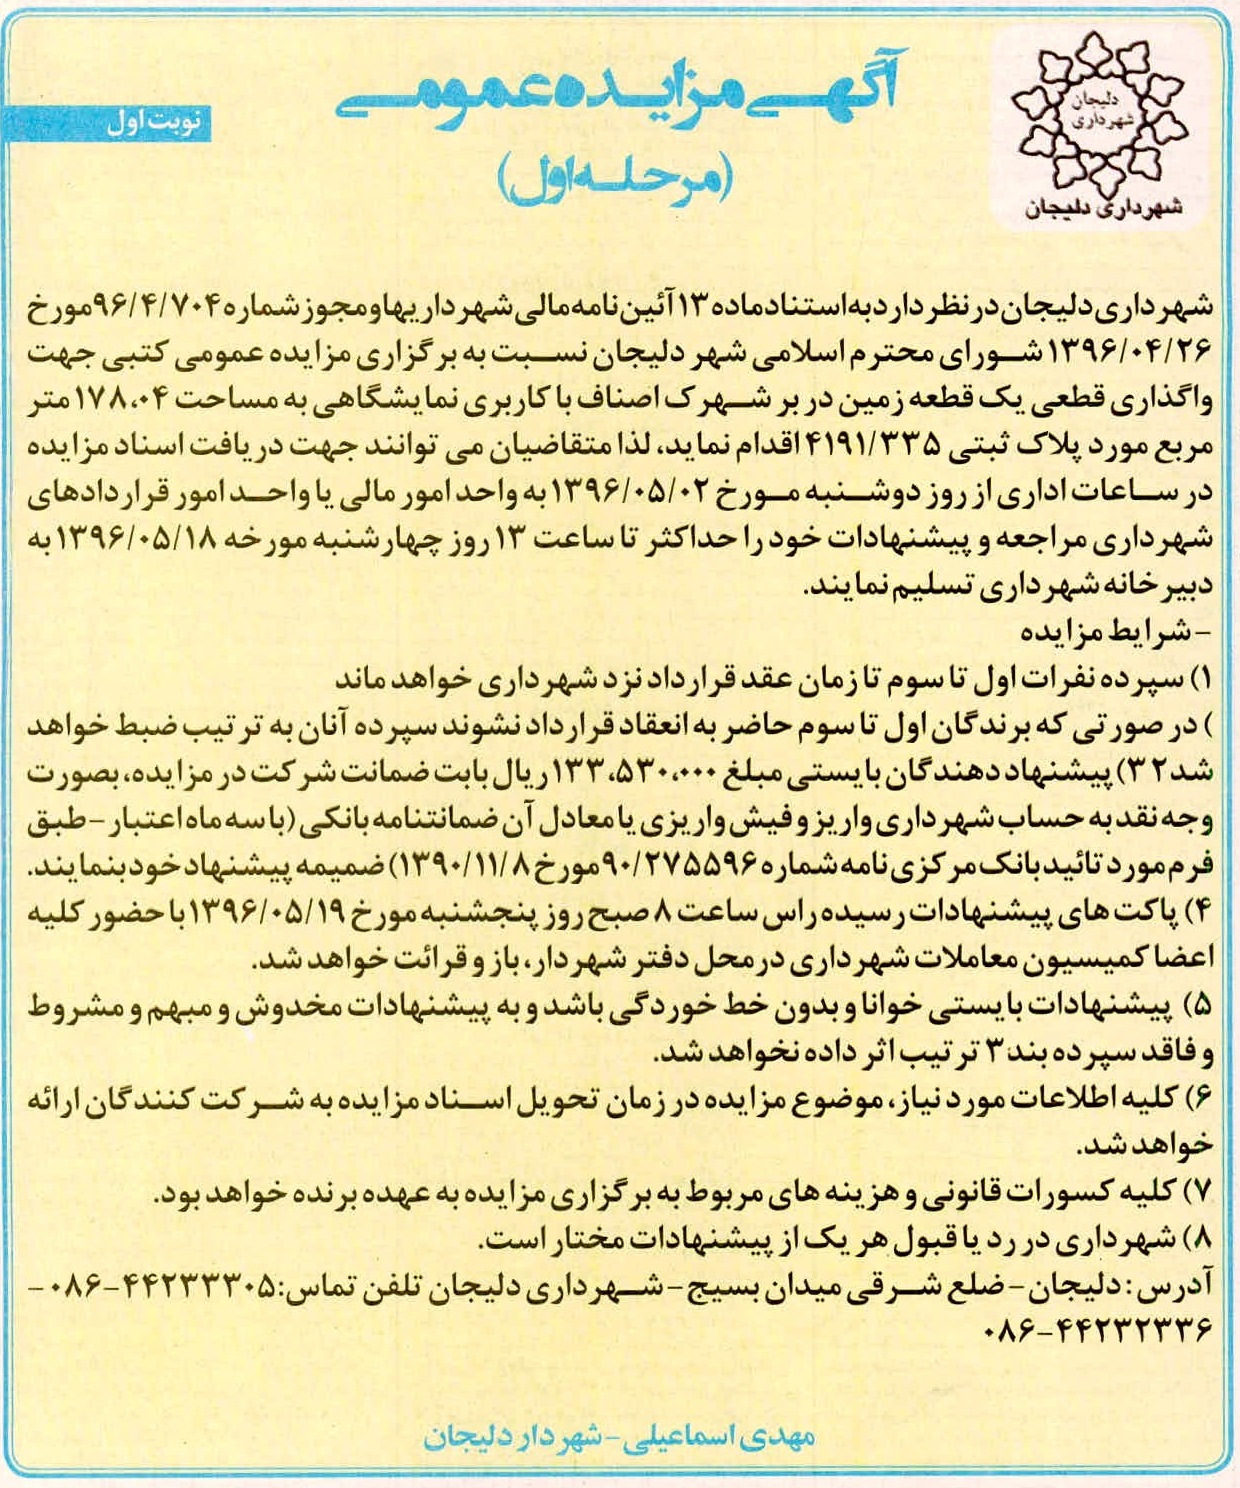 دلیجان
شهرداری
شهرداری دلیجان
آگهی مزایده عمومی
نوبت اول
(مرحله اول)
شهرداری دلیجان در نظر دارد به استناد ماده ۱۳ آئین نامه مالی شهرداریها و مجوز شماره ۹۶/۴/۷۰۴ مورخ
۱۳۹۶/۰۴/۲۶ شورای محترم اسلامی شهر دلیجان نسبت به برگزاری مزایده عمومی کتبی جهت
واگذاری قطعی یک قطعه زمین در بر شهرک اصناف با کاربری نمایشگاهی به مساحت ۱۷۸،۰۴ متر
مربع مورد پلاک ثبتی ۴۱۹۱/۳۳۵ اقدام نماید، لذا متقاضیان می توانند جهت دریافت اسناد مزایده
در ساعات اداری از روز دوشنبه مورخ ۱۳۹۶/۰۵/۰۲ به واحد امور مالی یا واحد امور قراردادهای
شهرداری مراجعه و پیشنهادات خود را حداکثر تا ساعت ۱۳ روز چهارشنبه مورخه ۱۳۹۶/۰۵/۱۸ به
دبیرخانه شهرداری تسلیم نمایند.
- شرایط مزایده
۱) سپرده نفرات اول تا سوم تا زمان عقد قرارداد نزد شهرداری خواهد ماند
) در صورتی که برندگان اول تا سوم حاضر به انعقاد قرارداد نشوند سپرده آنان به ترتیب ضبط خواهد
شد۳۲) پیشنهاد دهندگان بایستی مبلغ ۱۳۳،۵۳۰،۰۰۰ ریال بابت ضمانت شرکت در مزایده، بصورت
وجه نقد به حساب شهرداری واریز و فیش واریزی یا معادل آن ضمانتنامه بانکی (با سه ماه اعتبار - طبق
فرم مورد تائید بانک مرکزی نامه شماره ۹۰/۲۷۵۵۹۶ مورخ ۱۳۹۰/۱۱/۸) ضمیمه پیشنهاد خود بنمایند.
۴) پاکت های پیشنهادات رسیده راس ساعت ۸ صبح روز پنجشنبه مورخ ۱۳۹۶/۰۵/۱۹ با حضور کلیه
اعضا کمیسیون معاملات شهرداری در محل دفتر شهردار، باز و قرائت خواهد شد.
۵) پیشنهادات بایستی خوانا و بدون خط خوردگی باشد و به پیشنهادات مخدوش و مبهم و مشروط
و فاقد سپرده بند ۳ ترتیب اثر داده نخواهد شد.
۶) کلیه اطلاعات مورد نیاز، موضوع مزایده در زمان تحویل اسناد مزایده به شرکت کنندگان ارائه
خواهد شد.
۷) کلیه کسورات قانونی و هزینه های مربوط به برگزاری مزایده به عهده برنده خواهد بود.
۸) شهرداری در رد یا قبول هر یک از پیشنهادات مختار است.
آدرس : دلیجان - ضلع شرقی میدان بسیج - شهرداری دلیجان تلفن تماس: ۰۸۶-۴۴۲۳۳۳۰۵ -
۰۸۶-۴۴۲۳۲۳۳۶
مهدی اسماعیلی - شهردار دلیجان